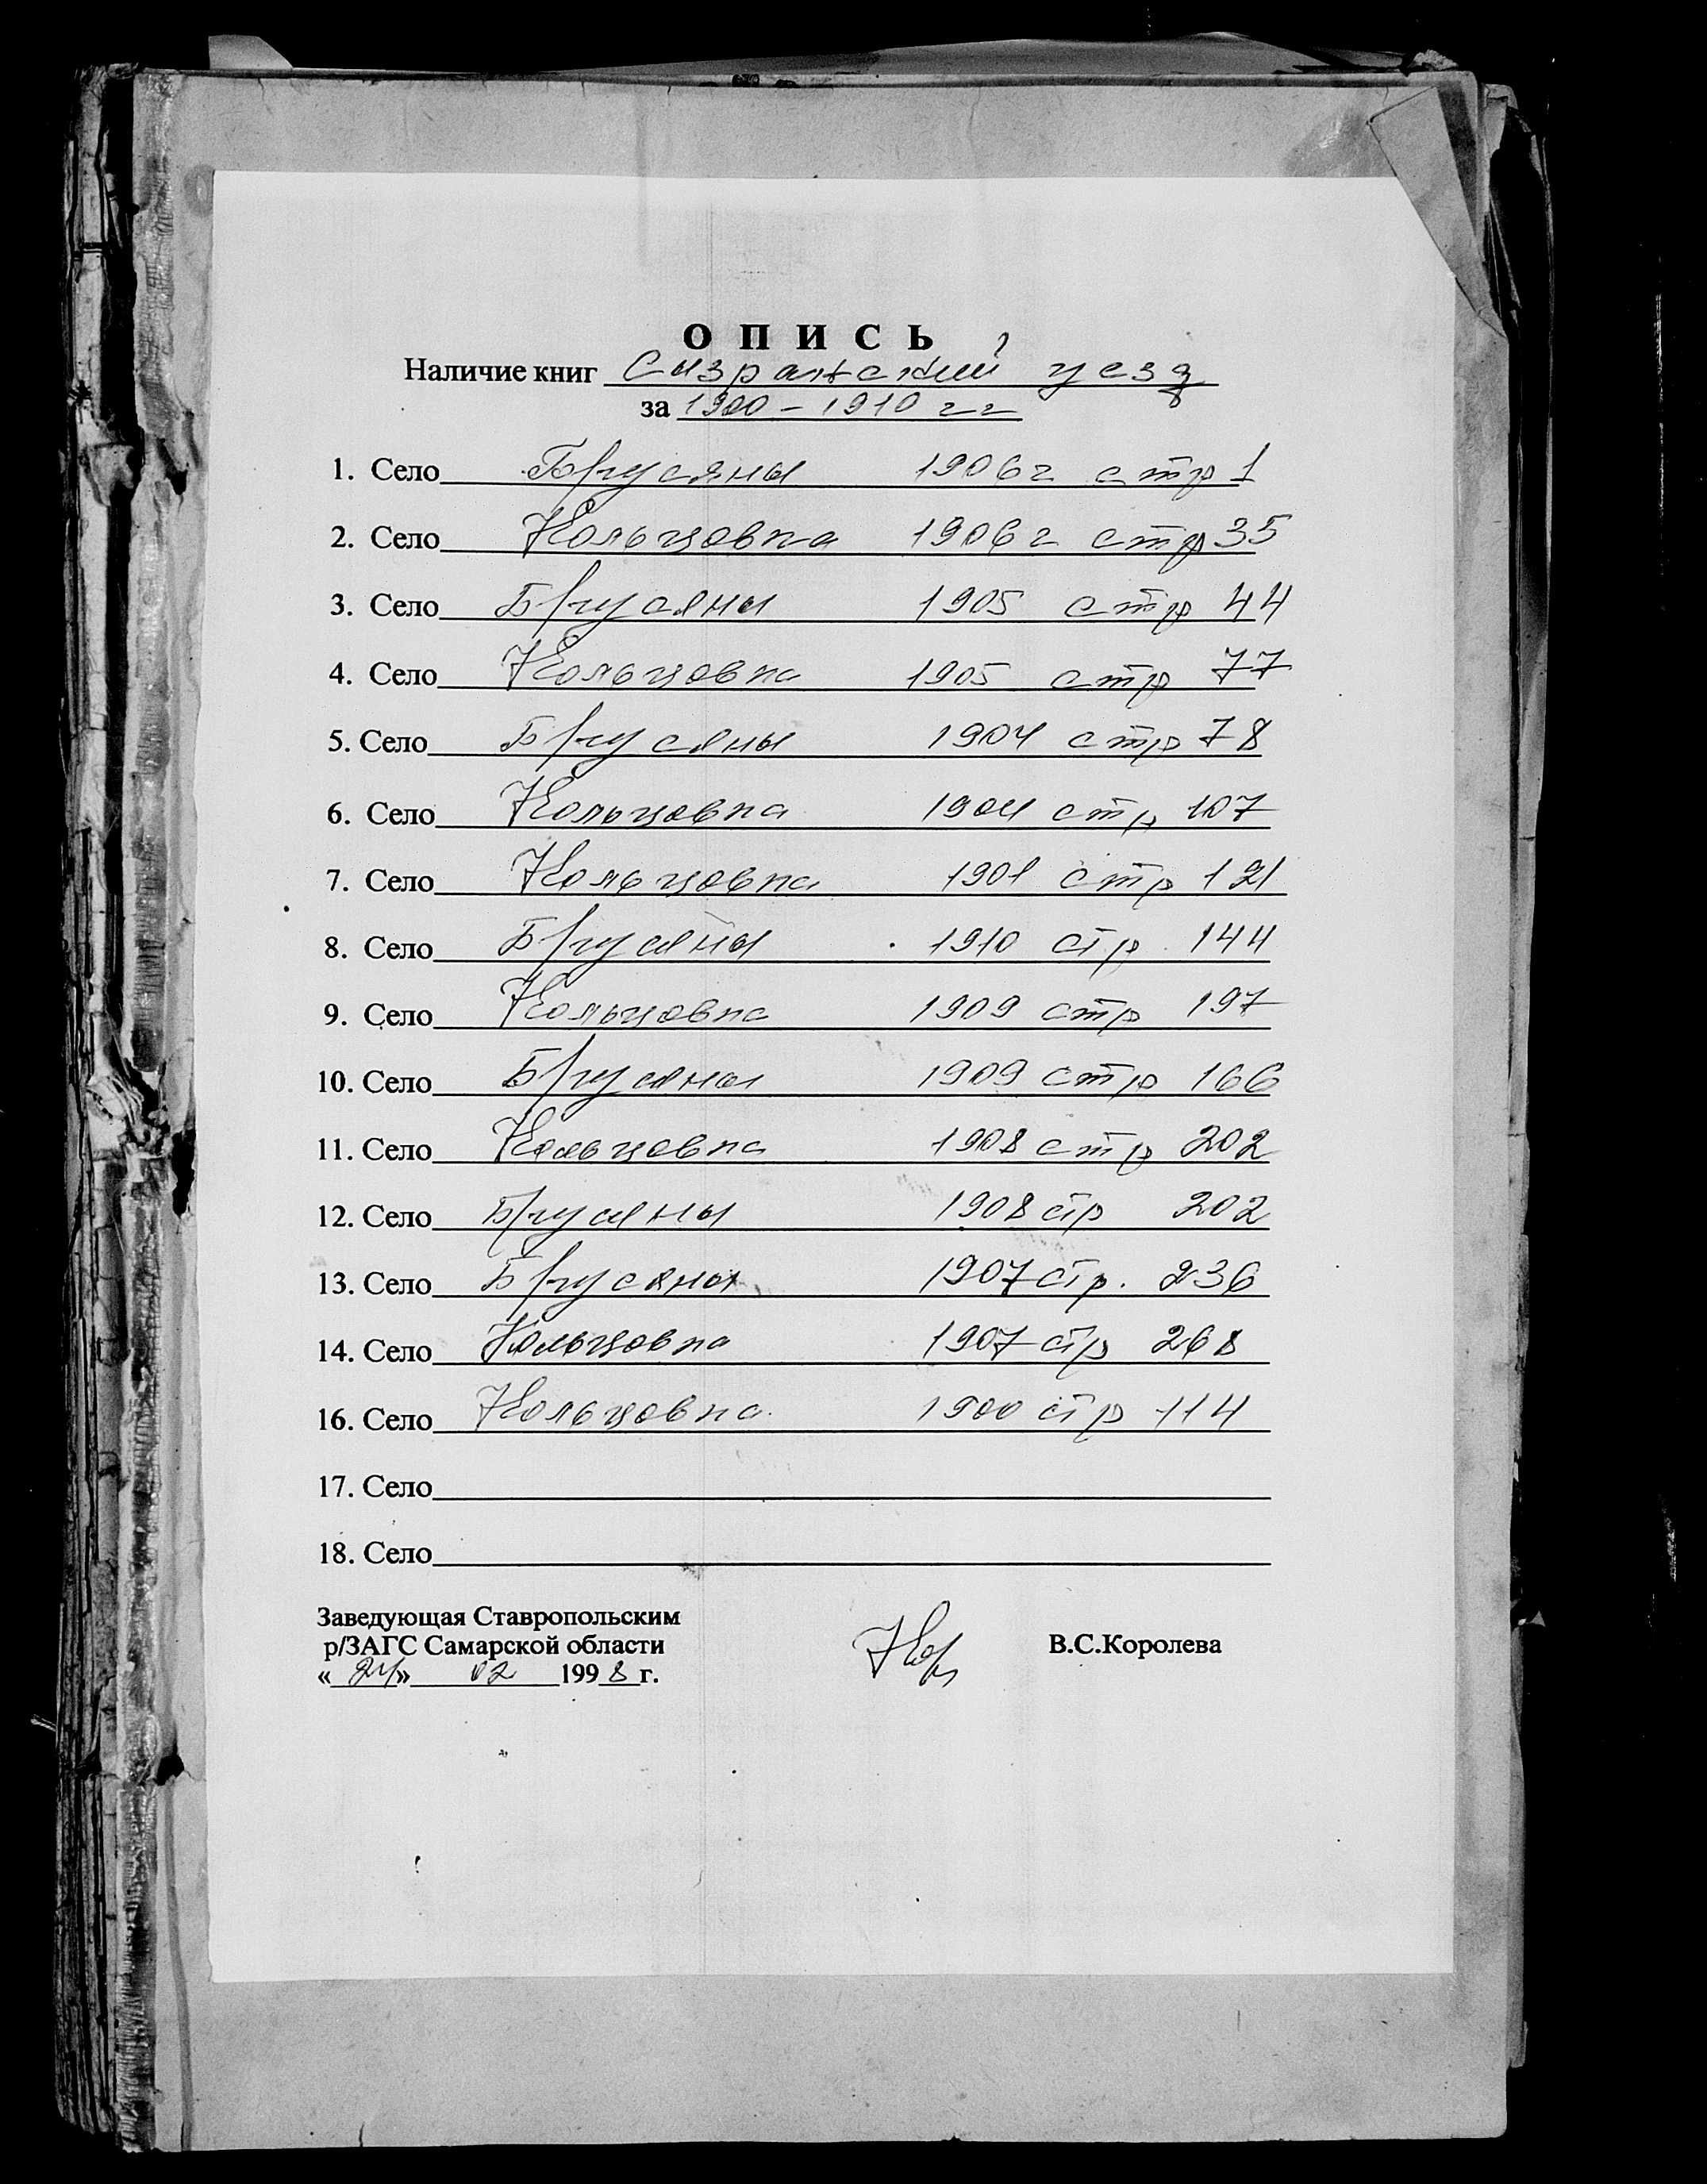 ОПИСЬ
Наличие книг Сызранский уезд
за 1900 – 1910 гг
1. Село Брусяны 1906г стр 1
2. Село Кольцовка 1906г стр 35
3. Село Брусяны 1905 стр 44
4. Село Кольцовка 1905 стр 77
5. Село Брусяны 1904 стр 78
6. Село Кольцовка 1904 стр 107
7. Село Кольцовка 1901 стр 121
8. Село Брусяны 1910 стр 144
9. Село Кольцовка 1909 стр 197
10. Село Брусяны 1909 стр 166
11. Село Кольцовка 1908 стр 202
12. Село Брусяны 1908 стр 202
13. Село Брусяны 1907 стр. 236
14. Село Кольцовка 1907 стр 268
16. Село Кольцовка 1900 стр 114
17. Село
18. Село
Заведующая Ставропольским
р/ЗАГС Самарской области В.С.Королева
«24» 02 1998 г.